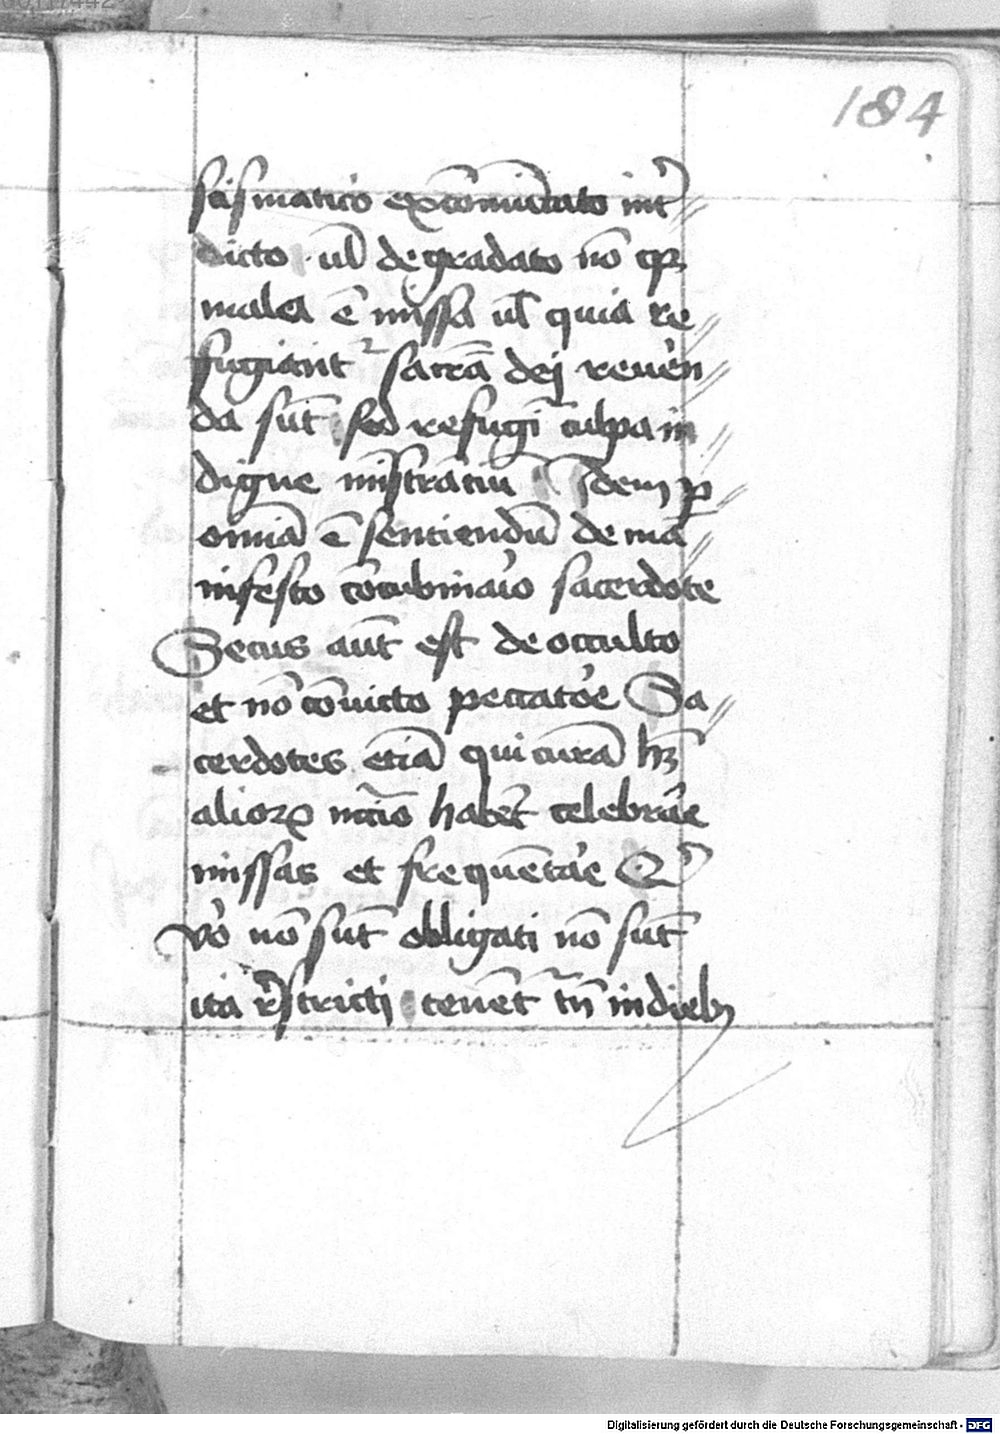 184
scismatico excōmuīcato int̄
dicto ul̄ degradato nō qꝫ
mala ē missa ul̄ quia re
fugiant² sacrā dej reuēn
da sūt sed refugī culpa in
digne mīstratiū Idem ꝑ
omīa ē sentiendū de ma
nifesto cōcubinaīo sacerdote
Secus aūt est de occulto
et nō cōuicto peccatoē Sa
cerdotes etiā qui curā hn̄t
alioꝝ nccīo habēt celebraē
missas et frequētaē Qⁱ
v̄o nō sūt obligati nō sūt
ita r̄stricti tenēt tn̄ in diebꝫ
Digitalisierung gefördert durch die Deutsche Forschungsgemeinschaft - DFG